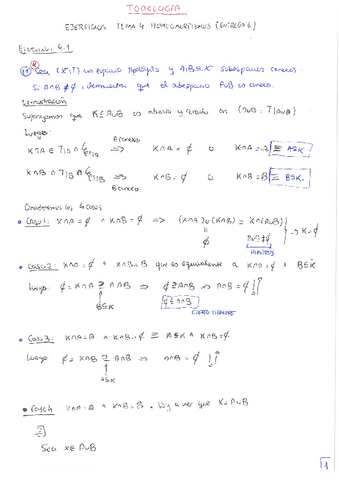 TOPOLOGÍA
EJERCICIOS TEMA 4 HOMEOMORFISMOS (ENTREGABLE)
Ejercicio 4.1
Sea (X,T) un espacio topológico y A,B⊆X subespacios conexos.
Si A∩B ≠ ∅, demuestra que el subespacio A∪B es conexo.
Demostración
Supongamos que K⊆A∪B es abierto y cerrado en (A∪B, T|A∪B)
Luego:
K∩A ∈ T|A ∩ C_T|A ⟹ K∩A = ∅ o K∩A = A ≡ A⊆K.
A conexo
K∩B ∈ T|B ∩ C_T|B ⟹ K∩B = ∅ o K∩B = B ≡ B⊆K.
B conexo
Consideremos los 4 casos
• Caso 1: K∩A = ∅ ∧ K∩B = ∅ ⟹ (K∩A)∪(K∩B) = K∩(A∪B) ⟹ K = ∅
∅ A∪B ≠ ∅
HIPÓTESIS
• Caso 2: K∩A = ∅ ∧ K∩B = B que es equivalente a K∩A = ∅ ∧ B⊆K
Luego: ∅ = K∩A ⊇ A∩B ⟹ ∅ ⊇ A∩B ⟹ A∩B = ∅ !!
B⊆K ∅⊆A∩B
CIERTO SIEMPRE
• Caso 3: K∩A = A ∧ K∩B = ∅ ≡ A⊆K ∧ K∩B = ∅
Luego ∅ = K∩B ⊇ A∩B ⟹ A∩B = ∅ !!
A⊆K
• Caso 4 K∩A = A ∧ K∩B = B. Voy a ver que K = A∪B
⊇
Sea x∈A∪B
1